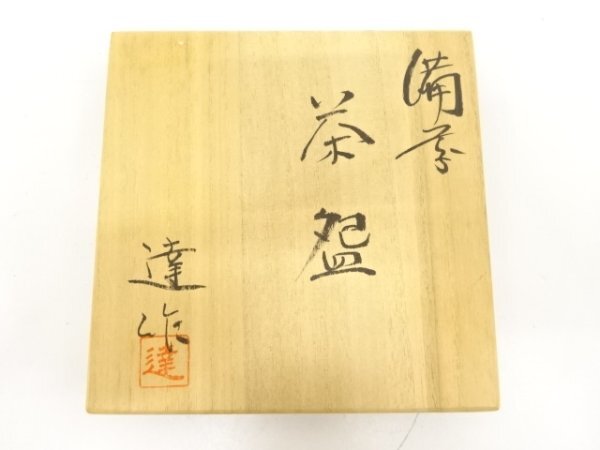 備前
茶盌
達作
達